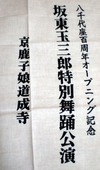 八千代座百周年オープニング記念
坂東玉三郎特別舞踊公演
京鹿子娘道成寺